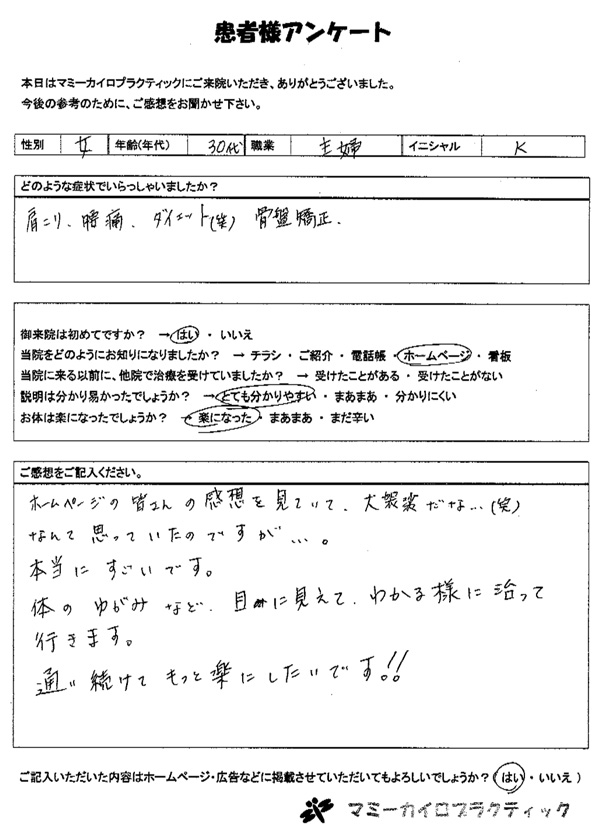 患者様アンケート
本日はマミーカイロプラクティックにご来院いただき、ありがとうございました。
今後の参考のために、ご感想をお聞かせ下さい。
性別 女 年齢(年代) 30代 職業 主婦 イニシャル K
どのような症状でいらっしゃいましたか？
肩こり、腰痛、ダイエット(笑) 骨盤矯正.
御来院は初めてですか？ →はい・いいえ
当院をどのようにお知りになりましたか？ → チラシ・ご紹介・電話帳・ホームページ・看板
当院に来る以前に、他院で治療を受けていましたか？ → 受けたことがある・受けたことがない
説明は分かり易かったでしょうか？ →とても分かりやすい・まあまあ・分かりにくい
お体は楽になったでしょうか？ →楽になった・まあまあ・まだ辛い
ご感想をご記入ください。
ホームページの皆さんの感想を見ていて、大袈裟だな…(笑)
なんて思っていたのですが…。
本当にすごいです。
体のゆがみなど、目に見えて、わかる様に治って
行きます。
通い続けてもっと楽にしたいです!!
ご記入いただいた内容はホームページ・広告などに掲載させていただいてもよろしいでしょうか？(はい・いいえ)
マミーカイロプラクティック